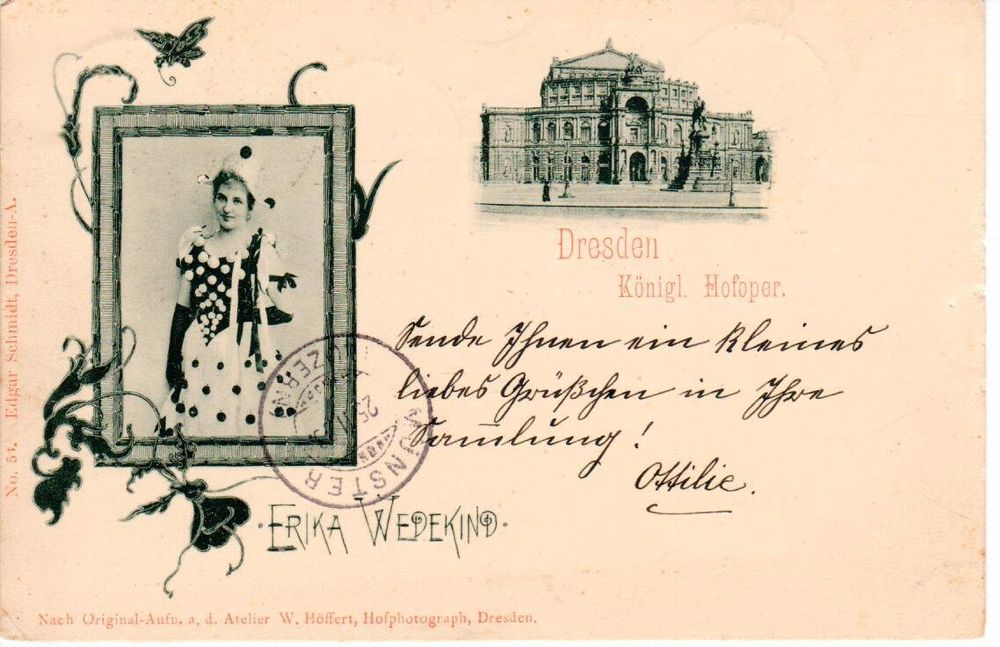 Dresden
Königl. Hofoper.
Sende Ihnen ein kleines
liebes Grüßchen in Ihre
Sammlung!
Ottilie.
·ERIKA WEDEKIND·
MÜNSTER
LUZERN
No. 54. Edgar Schmidt, Dresden-A.
Nach Original-Aufn. a. d. Atelier W. Höffert, Hofphotograph, Dresden.